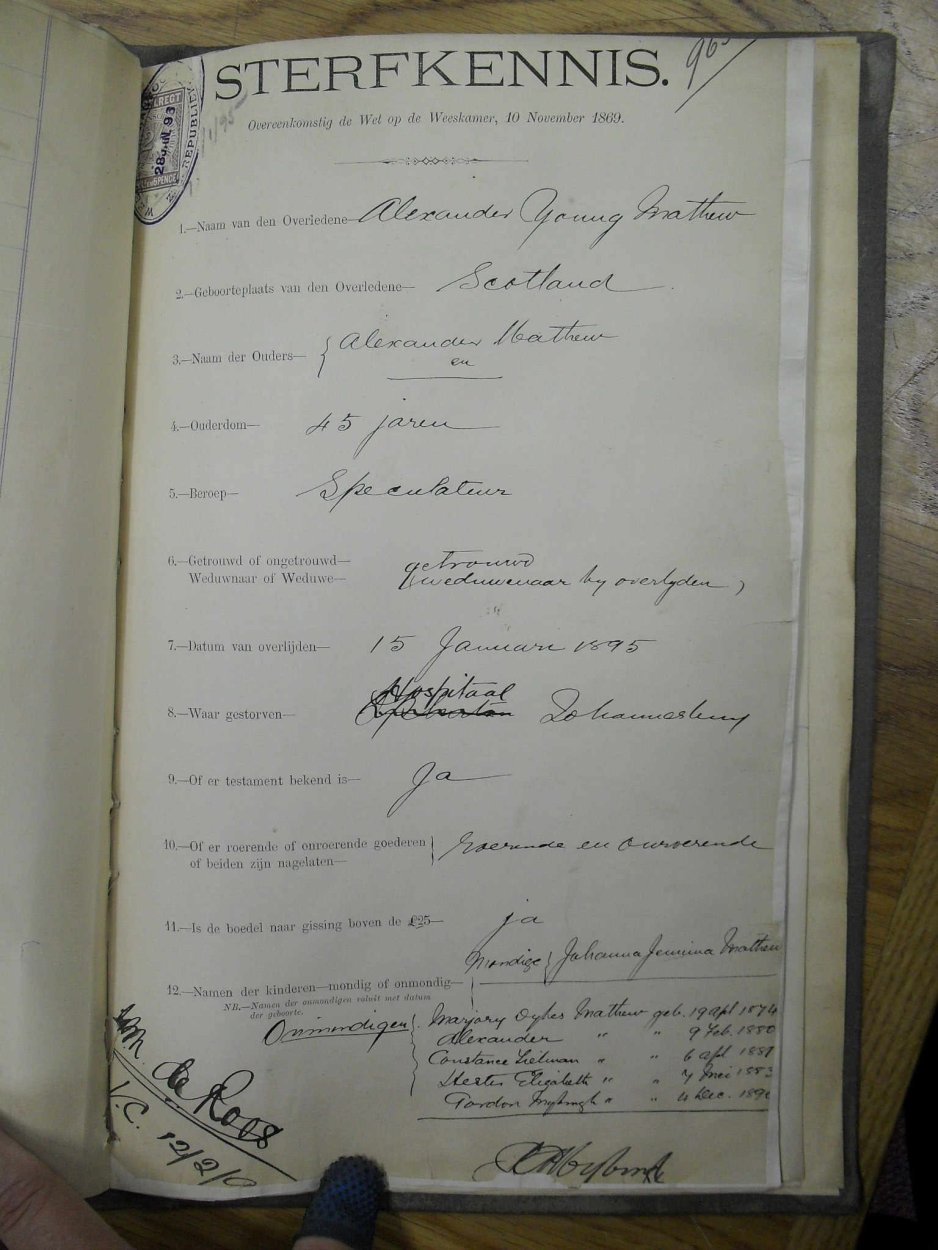 STERFKENNIS.
Overeenkomstig de Wet op de Weeskamer, 10 November 1869.
28 JAN 96
REPUBLIEK
1.—Naam van den Overledene— Alexander Young Mathew
2.—Geboorteplaats van den Overledene— Scotland
3.—Naam der Ouders— { Alexander Mathew
en
4.—Ouderdom— 45 jaren
5.—Beroep— Speculateur
6.—Getrouwd of ongetrouwd— getrouwd
Weduwnaar of Weduwe— (weduwenaar by overlyden)
7.—Datum van overlijden— 15 Januari 1895
Hospitaal
8.—Waar gestorven— Johannesburg
9.—Of er testament bekend is— Ja
10.—Of er roerende of onroerende goederen } roerende en onroerende
of beiden zijn nagelaten—
11.—Is de boedel naar gissing boven de £25— ja
Mondige { Johanna Jemima Mathew
12.—Namen der kinderen—mondig of onmondig—
NB.—Namen der onmondigen voluit met datum
der geboorte.
Onmondigen { Marjory Dykes Mathew geb. 19 apl 1874
Alexander " " 9 Feb. 1880
Constance " " 6 apl
Hester Elizabeth " " 7 Mei 1883
Gordon " " 4 Dec.
de Roos
V.C. 12/2/